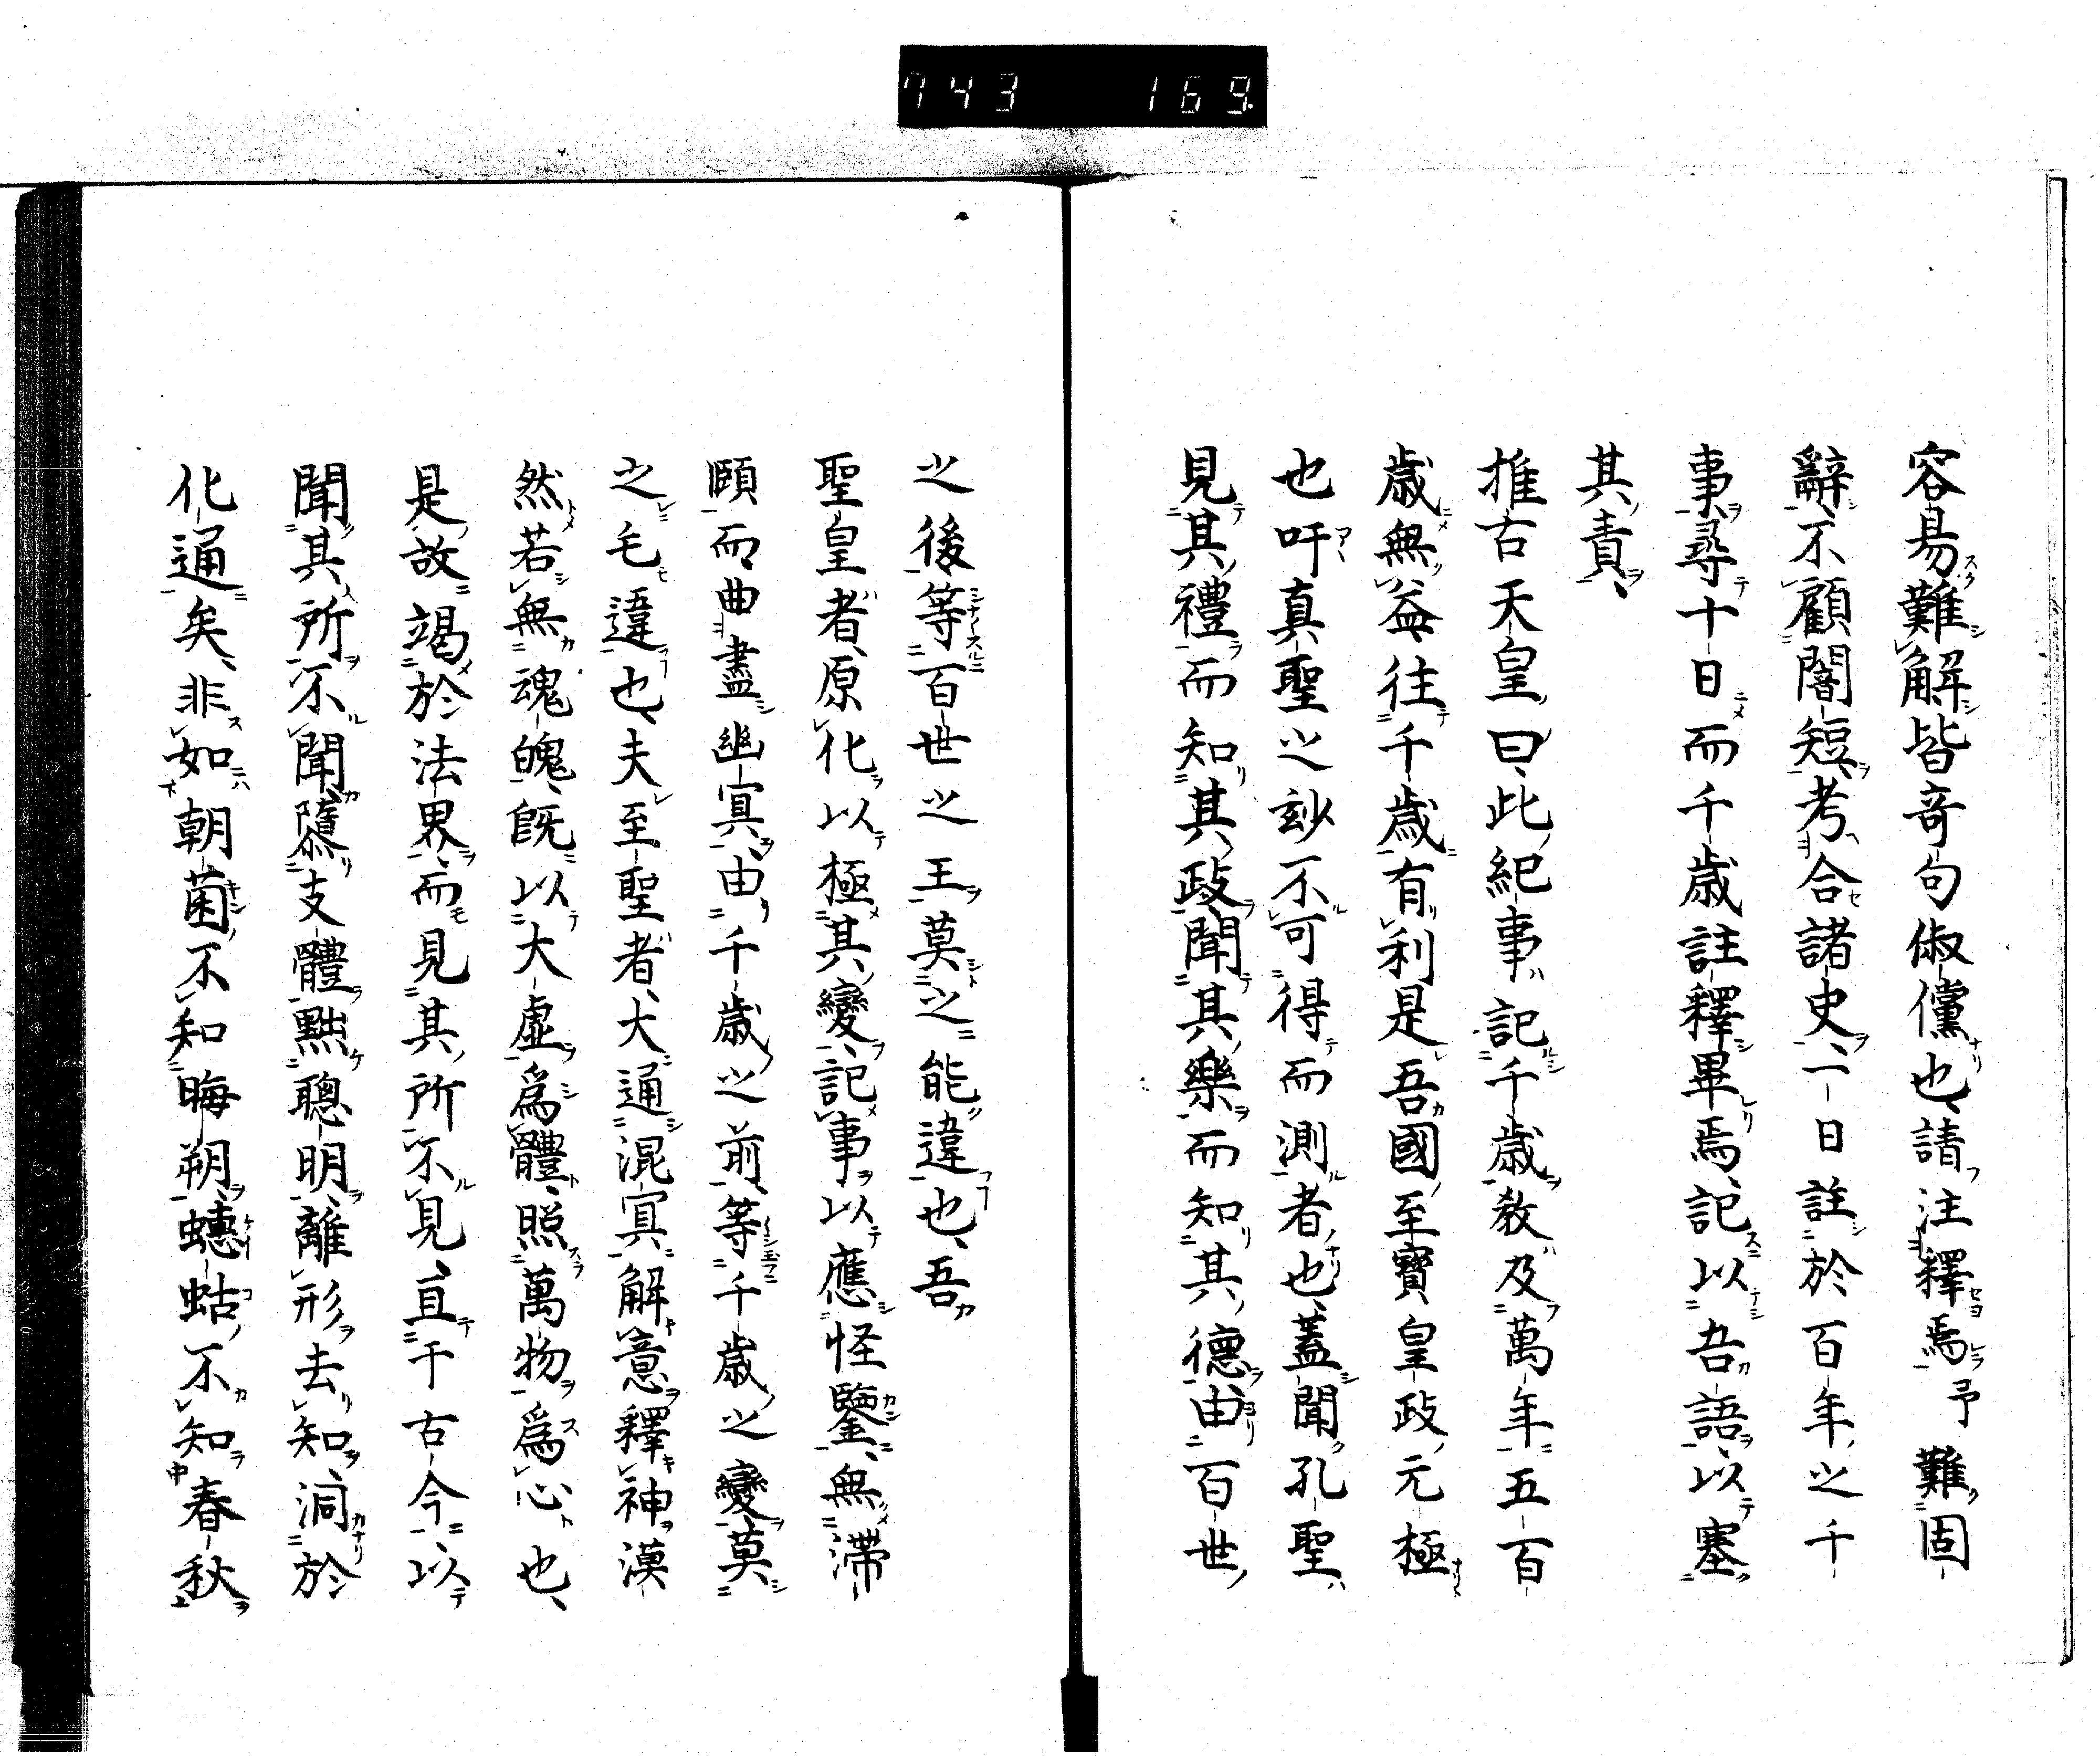 743 169
容易難解皆奇句俶儻也、請注釋焉予難固
辭、不顧闇短、考合諸史、一日註於百年之千
事尋十日而千歲註釋畢焉、記以吾語、以塞
其責、
推古天皇曰、此紀事記千歲教及萬年五百
歲無益、往千歲有利是吾國至寶皇政元極
也吁真聖之玅不可得而測者也、蓋聞孔聖
見其禮而知其政聞其樂而知其德由百世
之後等百世之王莫之能違也、吾
聖皇者、原化以極其變、記事以應怪鑒、無滯
頤而曲盡幽冥、由千歲之前、等千歲之變莫
之毛違也、夫至聖者、大通混冥解意釋神漠
然若無魂魄、既以大虛爲體、照萬物爲心也、
是故竭於法界、而見其所不見、亘千古今、以
聞其所不聞、隳支體黜聰明、離形去知、洞於
化通矣、非如朝菌不知晦朔、蟪蛄不知春秋